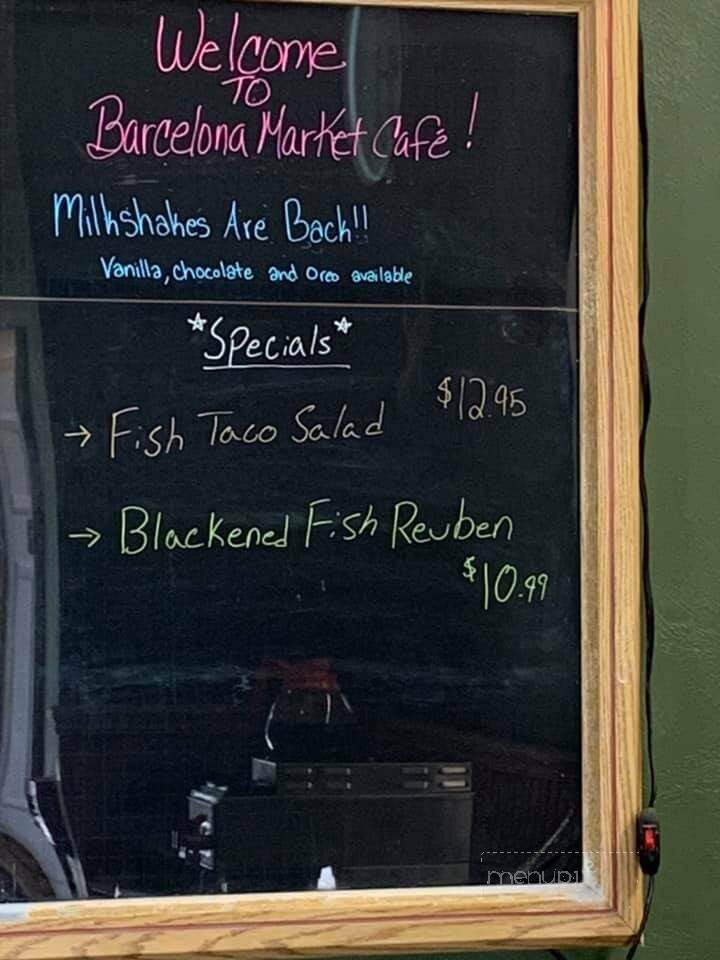 Welcome
TO
Barcelona Market Café!
Milkshakes Are Back!!
Vanilla, chocolate and Oreo available
*Specials*
→ Fish Taco Salad $12.95
→ Blackened Fish Reuben
$10.99
menupix